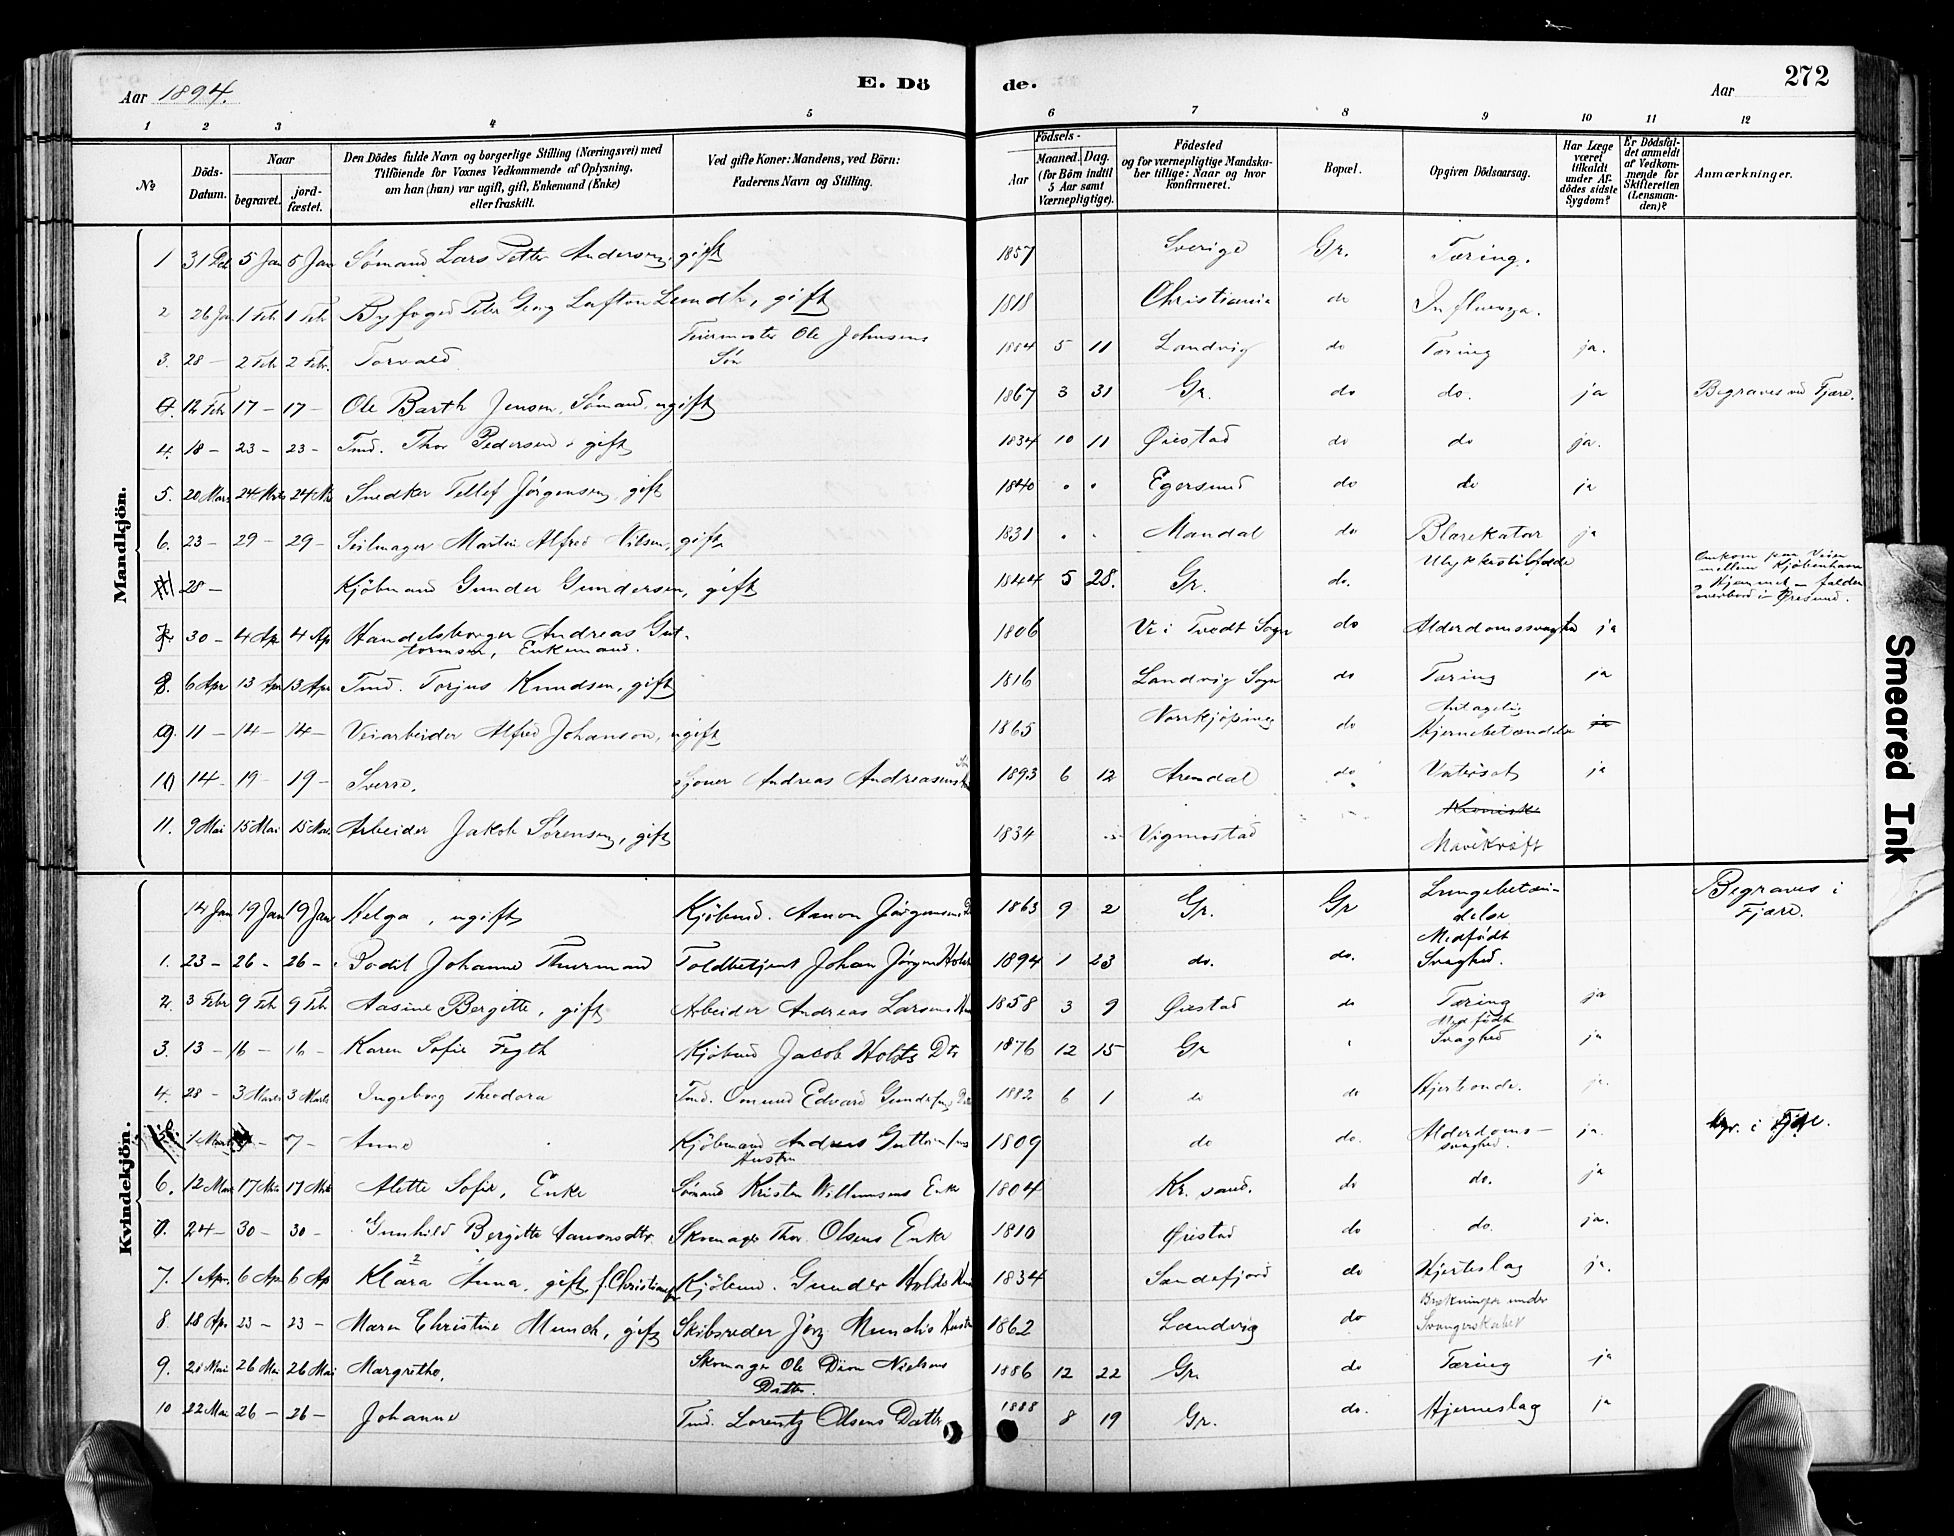 Aar 1894. E. Dö de. Aar 272
1 2 3 4 5 6 7 8 9 10 11 12
№
Döds-Datum.
Naar
begravet.
jord-fæstet.
Den Dödes fulde Navn og borgerlige Stilling (Næringsvei) med
Tilföiende for Voxnes Vedkommende af Oplysning,
om han (hun) var ugift, gift, Enkemand (Enke)
eller fraskilt.
Ved gifte Koner: Mandens, ved Börn:
Faderens Navn og Stilling.
Födsels-
Aar
Maaned. Dag.
(for Börn indtil
5 Aar samt
Værnepligtige).
Födested
og for værnepligtige Mandska-
ber tillige: Naar og hvor
konfirmeret.
Bopæl.
Opgiven Dödsaarsag.
Har Læge
været
tilkaldt
under Af-
dödes sidste
Sygdom?
Er Dödsfal-
det anmeldt
af Vedkom-
mende for
Skifteretten
(Lensman-
den)?
Anmærkninger.
Mandkjön.
1 31 5 Jan 5 Jan Sømand Lars Petter Andersen, gift 1857 Sverige Gr. Tæring.
2 26 Jan 1 Febr 1 Febr Byfoged Peter Georg Lund, gift 1818 Christiania do Influenza.
3. 28 – 2 Febr 2 Febr. Torvald Ole Johnsens Søn 1884 5 11 Landvig do Tæring ja.
12 Febr 17 – 17 – Ole Barth Jensen, Sømand, ugift 1867 3 31 Gr. do do. ja Begraves ved Fjære.
4. 18 – 23 – 23 – Tmd. Thor Pedersen, gift 1834 10 11 Øiestad do do ja.
5. 20 Mars 24 24 Snedker Tellef Jörgensen, gift 1840 Egersund do do ja
6. 23 – 29 – 29 – Seilmager Martin Alfred Nilsen, gift 1831 Mandal do Blærekatar ja
28 – Kjöbmand Gunder Gundersen, gift 1844 5 28. Gr. do. Ulykkestilfælde Omkom paa Veien
mellem Kjöbenhavn
og Hjemmet – falden
overbord i Øresund.
7. 30 – 4 Ap 4 Ap Handelsborger Andreas Gut-
tormsen, Enkemand. 1806 Ve i Tvedt Sogn do Alderdomssvaghed ja
8. 6 Apr 13 Apr 13 Apr Tmd. Torjus Knudsen, gift 1816 Landvig Sogn do Tæring ja
9. 11 – 14 – 14 – Veiarbeider Alfred Johanson, ugift 1865 Norrkjöping do Antagelig
Hjernebetændelse ja
10 14 – 19 – 19 – Sverre. Andreas Andreasens Søn 1893 6 12 Arendal do ja
11. 9 Mai 15 Mai 15 Mai Arbeider Jakob Sørensen, gift 1834 Vigmostad Mavekræft
Kvindekjön.
14 Jan 19 Jan 19 Jan Helga, ugift Kjöbmd. Aanon Jørgensens 1863 9 2 Gr. Gr Lungebetæn-
delse Begraves i
Fjære.
1. 23 – 26 – 26 – Bodil Johanne Thurmand Toldbetjent Johan Jörgen Holst 1894 1 23 do. do. Medfødt
Svaghed.
2. 3 Febr 9 Feb 9 Feb Aasine Bergitte, gift Arbeider Andreas Larsens 1858 3 9 Øiestad do Tæring ja
3. 13 – 16 – 16 – Karen Sofie Kjöbmd Jacob Holsts Dtr 1876 12 15 Gr Medfødt
Svaghed ja
4. 28 – 3 Marts 3 Marts Ingeborg Theodora Tmd. Edvard 1882 6 1 do do Hjerteonde. ja.
5. 1 Marts 7 – Anne Kjöbmand Andreas Guttormsens
Hustru 1809 do do. Alderdoms-
svaghed ja. i Fjære.
6. 12 Mars 17 17 Alette Sofie, Enke Sømand Kristen Willumsens Enke 1804 Kr. sand. do do. ja
24 – 30 – 30 – Gunhild Bergitte Aanonsdtr. Skomager Thor Olsens Enke 1810 Øiestad do do. ja.
7. 1 Apr. 6 Apr 6 Ap Klara Anna, gift, Kjöbmd. Gunder Holsts 1834 Sandefjord do Hjerteslag ja.
8. 18 Apr 23 – 23 – Maren Christine Munch, gift Skibsreder Jörg. Munchs Hustru 1862 Landvig do under
Svangerskabet
9. 21 Mai 26 Mai 26 Mai Margrethe, Skomager Ole Nielsens
Datter. 1886 12 22 Gr. do Tæring ja
10 22 Mai 26 – 26 – Johanne Tmd. Lorentz Olsens Datter 1888 8 19 Gr. do. Hjerneslag ja
Smeared Ink